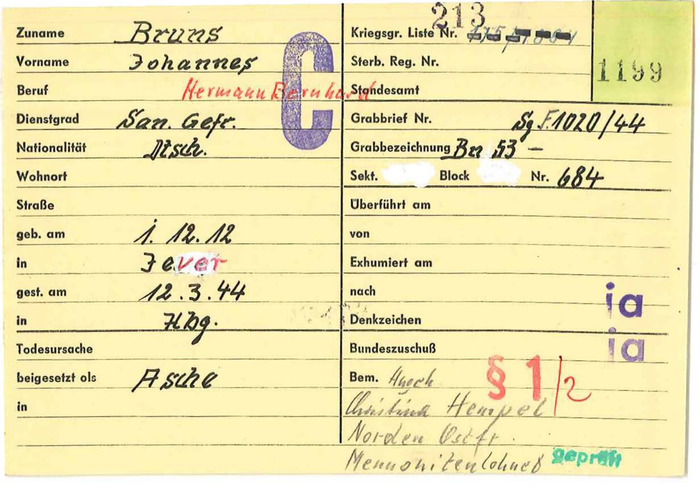 Zuname Bruns
Vorname Johannes
Beruf Hermann Bernhard
Dienstgrad San. Gefr.
Nationalität Dtsch.
Wohnort
Straße
geb. am 1. 12. 12
in Jever
gest. am 12. 3. 44
in Hbg.
Todesursache
beigesetzt als Asche
in
C
213
Kriegsgr. Liste Nr.
1199
Sterb. Reg. Nr.
Standesamt
Grabbrief Nr. Sg F. 1020/44
Grabbezeichnung Bn 53 –
Sekt. Block Nr. 684
Überführt am
von
Exhumiert am
nach
ia
Denkzeichen
Bundeszuschuß ia
Bem. § 1/2
Christina Hempel
Norden Ostfr.
geprüft